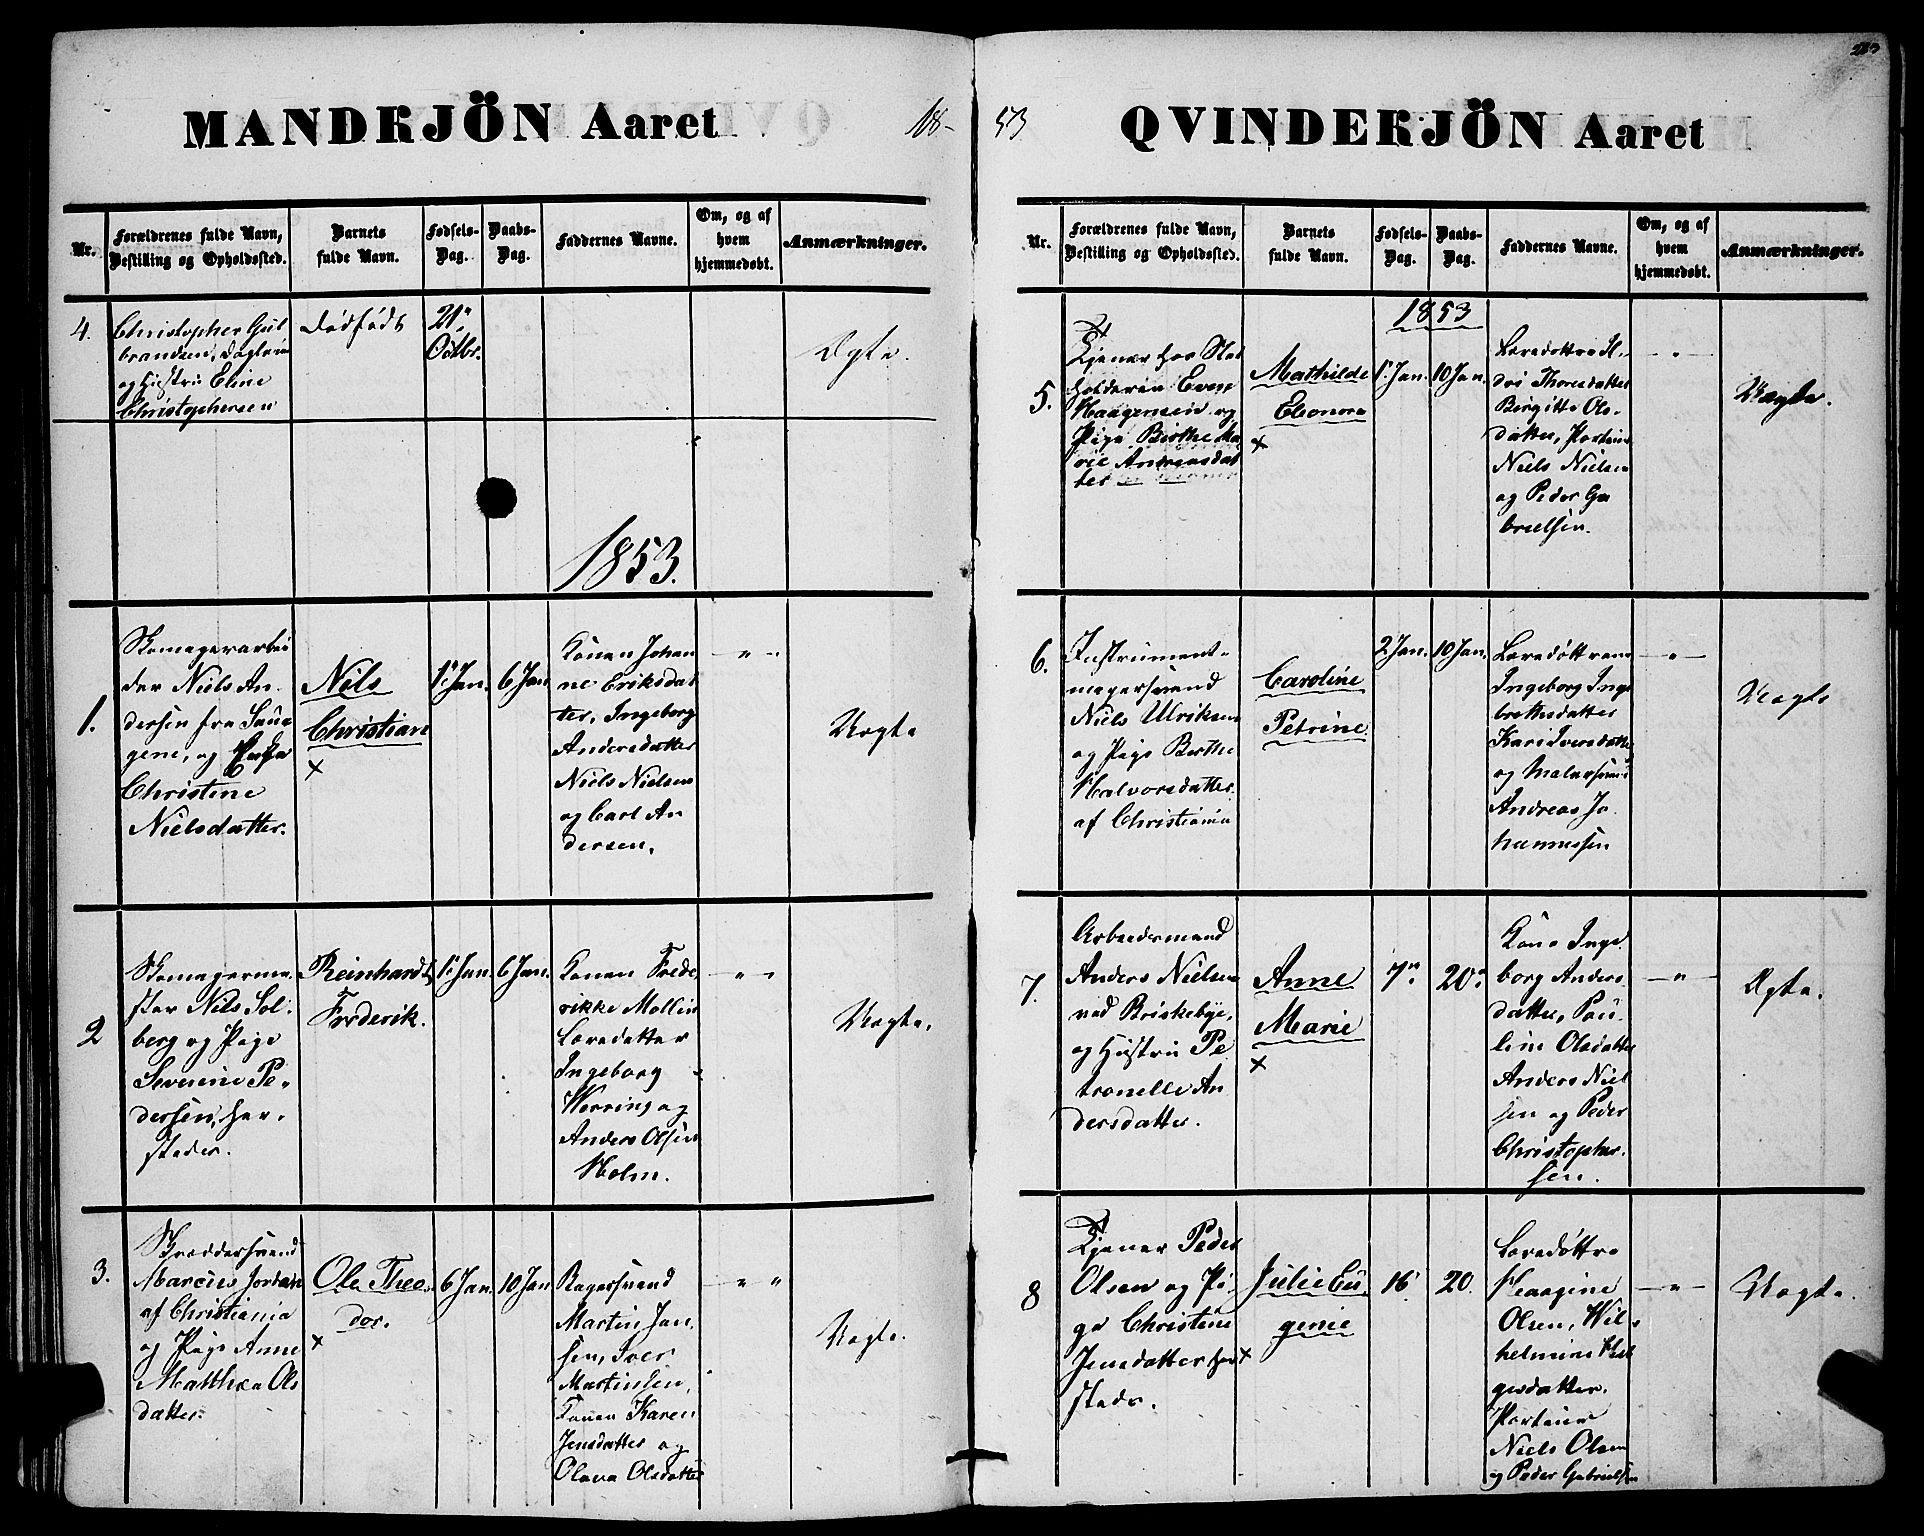 MANDKJÖN Aaret 18-
Nr.
Forældrenes fulde Navn,
Bestilling og Opholdssted.
Barnets
fulde Navn.
Fødsels-
Dag.
Daabs-
Dag.
Faddernes Navne.
Om, og af
hvem
hjemmedøbt.
Anmærkninger.
4.
Christopher Gul
brandsen,
og Hustru Eline
Christophersen
Dødfødt
21'
Octbr.
Ægte.
1853.
1.
Skomagerarbei
der Niels An-
dersen fra Sau-
gene, og Pige
Christine
Nielsdatter.
Nils
Christian
x
1' Jan.
6 Jan
Konen Johan
ne Eriksdat
ter, Ingeborg
Andersdatter
Niels Nielsen
og Carl An
dersen.
— " —
Uægte
2
Skomagerme-
ster Nils Sol-
berg og Pige
Severine Pe-
dersen, her-
steder.
Reinhardt
Frederik.
1' Jan.
6 Jan.
Konen Frede
rikke Mollin
Løredatter
Ingeborg
Werring og
Anders Olsen
Holm.
— " —
Uægte.
3.
Skreddersvend
Marcus Jordan
af Christiania
og Pige Anne
Matthea Ols
datter.
Ole Theo-
dor.
x
6 Jan.
10 Jan
Bagersvend
Martin Jan-
sen, Iver
Martinsen,
Konen Karen
Jensdatter og
Olava Olsdatter
— " "
Uægte.
53 QVINDEKJÖN Aaret
Nr.
Forældrenes fulde Navn,
Bestilling og Opholdssted.
Barnets
fulde Navn.
Fødsels-
Dag.
Daabs-
Dag.
Faddernes Navne.
Om, og af
hvem
hjemmedøbt.
Anmærkninger.
1853
5.
Tjener hos Stat
holderen Even
Haagensen og
Pige Birthe Ma
rie Andreasdat
ter
Mathilde
Eleonora
x
1' Jan.
10 Jan.
Thoresdatter
Birgitte Ols-
datter, Portein
Niels Nielsen
og Peder Ga
brielsen.
— " —
Uægte.
6.
Instrument-
magersvend
Niels Ulriksen
og Pige Berthe
Halvorsdatter
af Christiania
Caroline
Petrine
2 Jan.
10 Jan.
Ingeborg Inge
brethsdatter
Kari Iversdatter
og Malersvend
Andreas Jo
hannessen
— " —
Uægte
7.
Arbeidsmand
Anders Nielsen
ved Briskebye,
og Hustru Pe
tronelle An
dersdatter.
Anne
Marie
x
7"
20"
Kone Inge
borg Anders
datter, Pau-
line Olsdatter
Anders Niel
sen og Peder
Christopher-
sen.
— " —
Ægte.
8
Tjener Peder
Olsen og Pi-
ge Christine
Jensdatter her
steds.
Julie Eu-
genie
x
16'
20.
Haagine
Olsen, Wil-
helmine Hel
gesdatter.
Niels Olsen
og Peder Gabrielsen
— " —
Uægte.